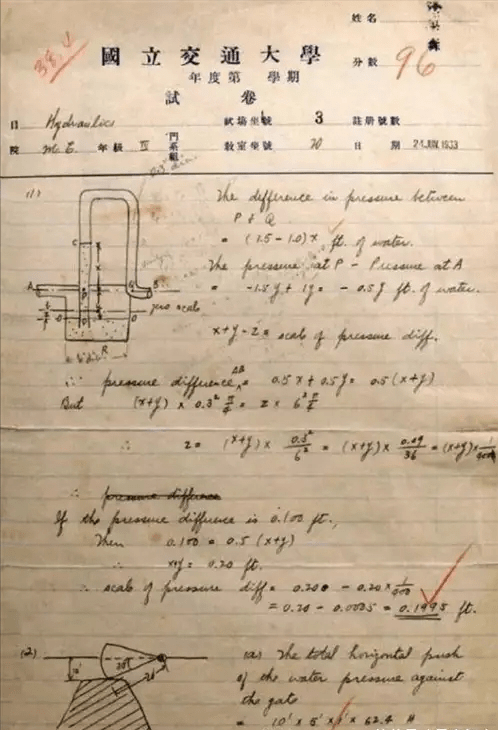 姓名
38 ↓
國立交通大學
分數 96
年度第 學期
試卷
目 Hydraulics 試場坐號 3 註冊號數
院 M.E. 年級 IV 門系組 教室坐號 20 日期 24 JUN 1933
(1)
The difference in pressure between
P & Q
= (1.5 - 1.0) x ft. of water.
The pressure at P - Pressure at A
= -1.5y + 1y = -0.5y ft. of water.
C
A
B
zero scale
R
x + y - z = scale of pressure diff.
∴ pressure difference AB = 0.5x + 0.5y = 0.5 (x+y)
But (x+y) × 0.3² π/4 = z × 6² π/4
∴ z = (x+y) × 0.3²/6² = (x+y) × 0.09/36 = (x+y) × 1/400
∴ pressure difference
If the pressure difference is 0.100 ft.,
Then 0.100 = 0.5 (x+y)
x+y = 0.20 ft.
∴ scale of pressure diff = 0.200 - 0.20 × 1/400
= 0.20 - 0.0005 = 0.1995 ft.
(2)
(a) The total horizontal push
of the water pressure against
the gate
= 10' × 5' × 1' × 62.4 #